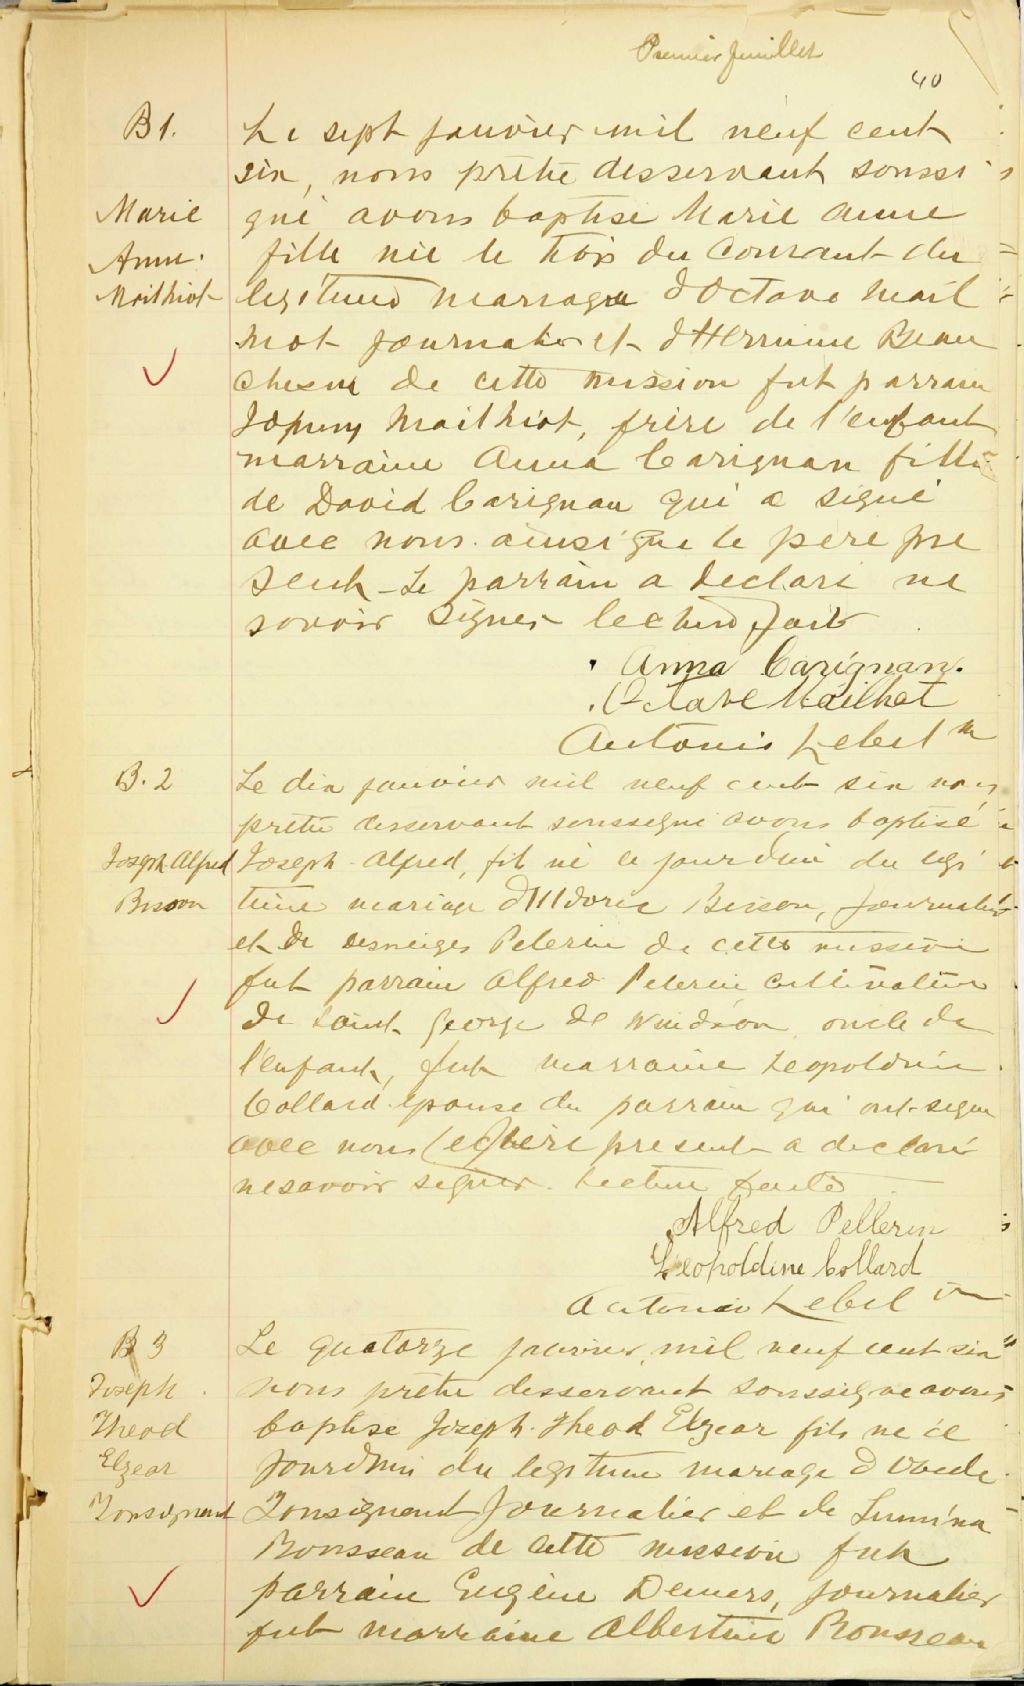 Premier feuillet
40
B 1.
Marie
Anne.
Mailhiot
Le sept janvier mil neuf cent
six, nous prêtre desservant soussi
gné avons baptisé Marie Anne
fille née le trois du courant du
legitime mariage d'Octave Mail
hiot journalier et d'Hermine Beau
chesne de cette mission fut parrain
Johnny Mailhiot, frère de l'enfant
marraine Anna Carignan fille
de David Carignan qui a signé
avec nous ainsi que le père pre
sent - Le parrain a declaré ne
savoir signer lecture faite
Anna Carignan.
Octave Mailhot
Antonio Lebel ptre
B. 2
Joseph Alfred
Bisson
Le dix janvier mil neuf cent six nous
prêtre desservant soussigné avons baptisé
Joseph Alfred, fil né ce jourdhui du legi
time mariage d'Ildoric Bisson, journalier
et de desneiges Pelerin de cette mission
fut parrain Alfred Pelerin cultivateur
de Saint George de Windsor oncle de
l'enfant, fut marraine Leopoldine
Collard epouse du parrain qui ont signé
avec nous le père present a declaré
ne savoir signer. Lecture faite
Alfred Pellerin
Leopoldine Collard
Antonio Lebel
B 3
Joseph
Theod
Elzear
Tonsignant
Le quatorze janvier, mil neuf cent six
nous prêtre desservant soussigné avons
baptise Joseph. Theod Elzear fils né ce
jourdhui du legitime mariage d'Obede
Tonsignant journalier et de Lumina
Rousseau de cette mission fut
parrain Eugène Demers, journalier
fut marraine Albertine Rousseau